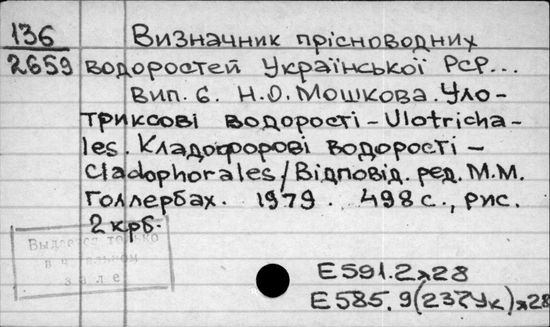 136
2659
Визначник прісноводних
водоростей Української РСР...
Вип. 6. Н.О. Мошкова. Уло-
триксові водорості – Ulotricha-
les. Кладофорові водорості –
Cladophorales / Відповід. ред. М.М.
Голлербах. 1979. 498 с., рис.
2 крб.
Выдается только
в читальном
зале
Е591.2я28
Е585.9(237Ук)я28